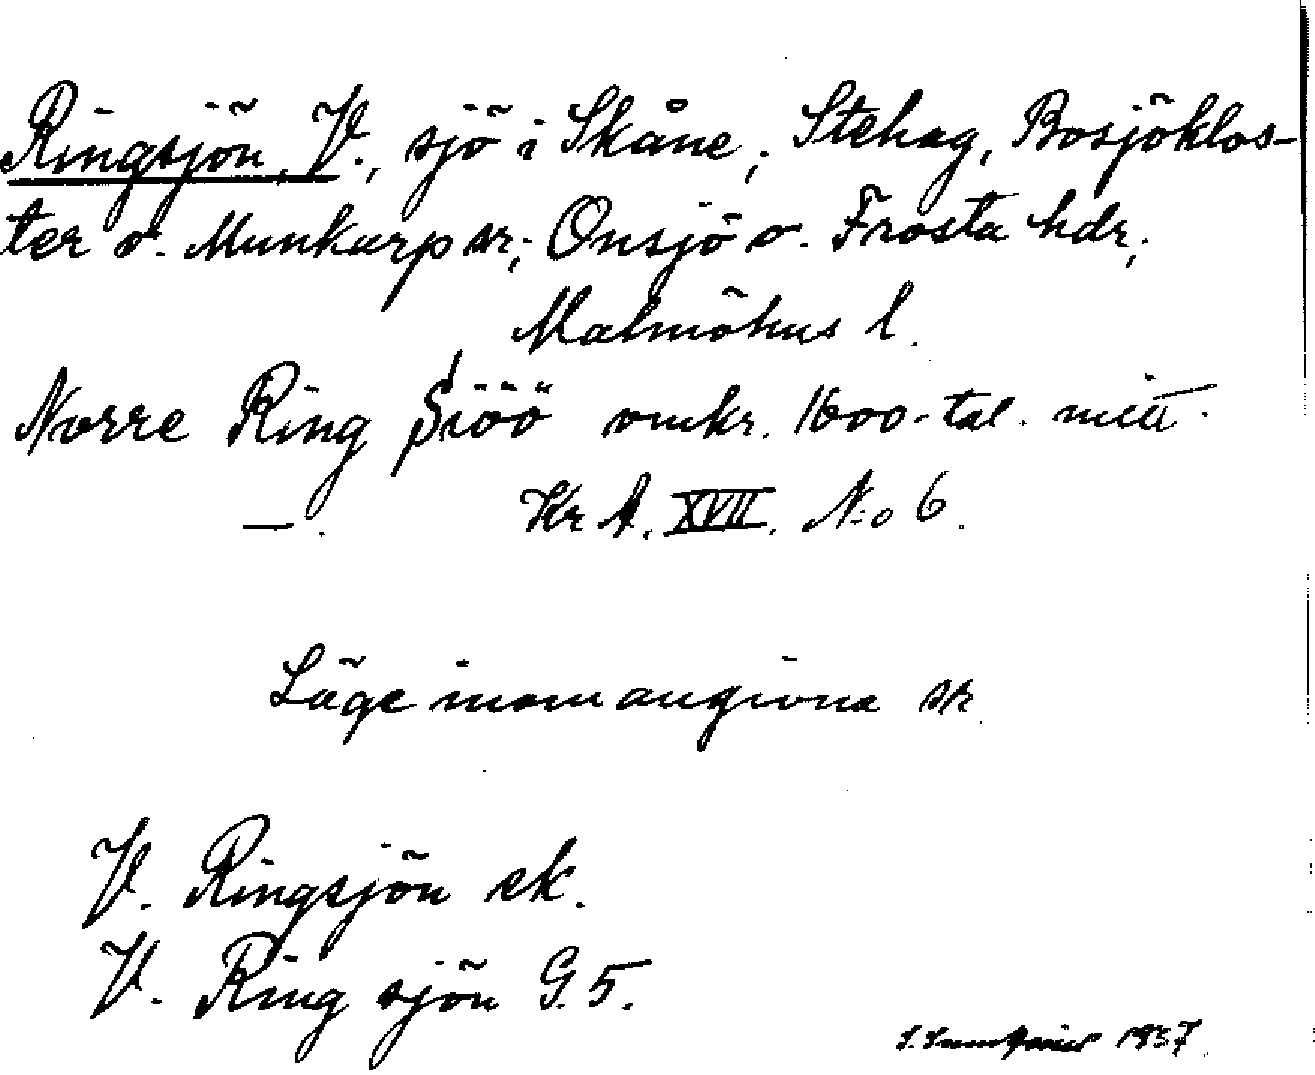 Ringsjön, V., sjö i Skåne; Stehag, Bosjöklos-
ter o. Munkarp sr; Onsjö o. Frosta hdr,
Malmöhus l.
Norre Ring Siöö omkr. 1600-tal. mitt.
—. Kr A. XVII. N:o 6.
Läge inom angivna sk
V. Ringsjön ek.
V. Ring sjön G. 5.
1937